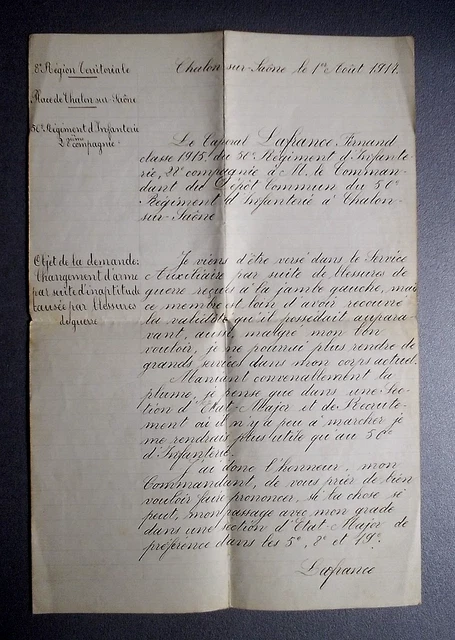 8e Région Territoriale
Place de Chalon sur Saône
56e Régiment d'Infanterie
22ème compagnie
Chalon sur Saône le 1er Août 1917.
Le Caporal Lafrance, Fernand
classe 1915, du 56e Régiment d'Infante-
rie, 22e compagnie à M. le Comman-
dant du Dépôt Commun du 56e
Régiment d'Infanterie à Chalon-
sur-Saône
Objet de la demande:
Changement d'arme
par suite d'inaptitude
causée par blessures
de guerre
Je viens d'être versé dans le Service
Auxiliaire par suite de blessures de
guerre reçues à la jambe gauche, mais
ce membre est loin d'avoir recouvré
la validité qu'il possédait aupara-
vant, aussi malgré mon bon
vouloir, je ne pourrai plus rendre de
grands services dans mon corps actuel.
Maniant convenablement la
plume, je pense que dans une Sec-
tion d'Etat-Major et de Recrute-
ment où il n'y a peu à marcher je
me rendrais plus utile qu'au 56e
d'Infanterie.
J'ai donc l'honneur, mon
Commandant, de vous prier de bien
vouloir faire prononcer, si la chose se
peut, mon passage avec mon grade
dans une section d'Etat-Major de
préférence dans les 5e, 8e et 19e.
Lafrance